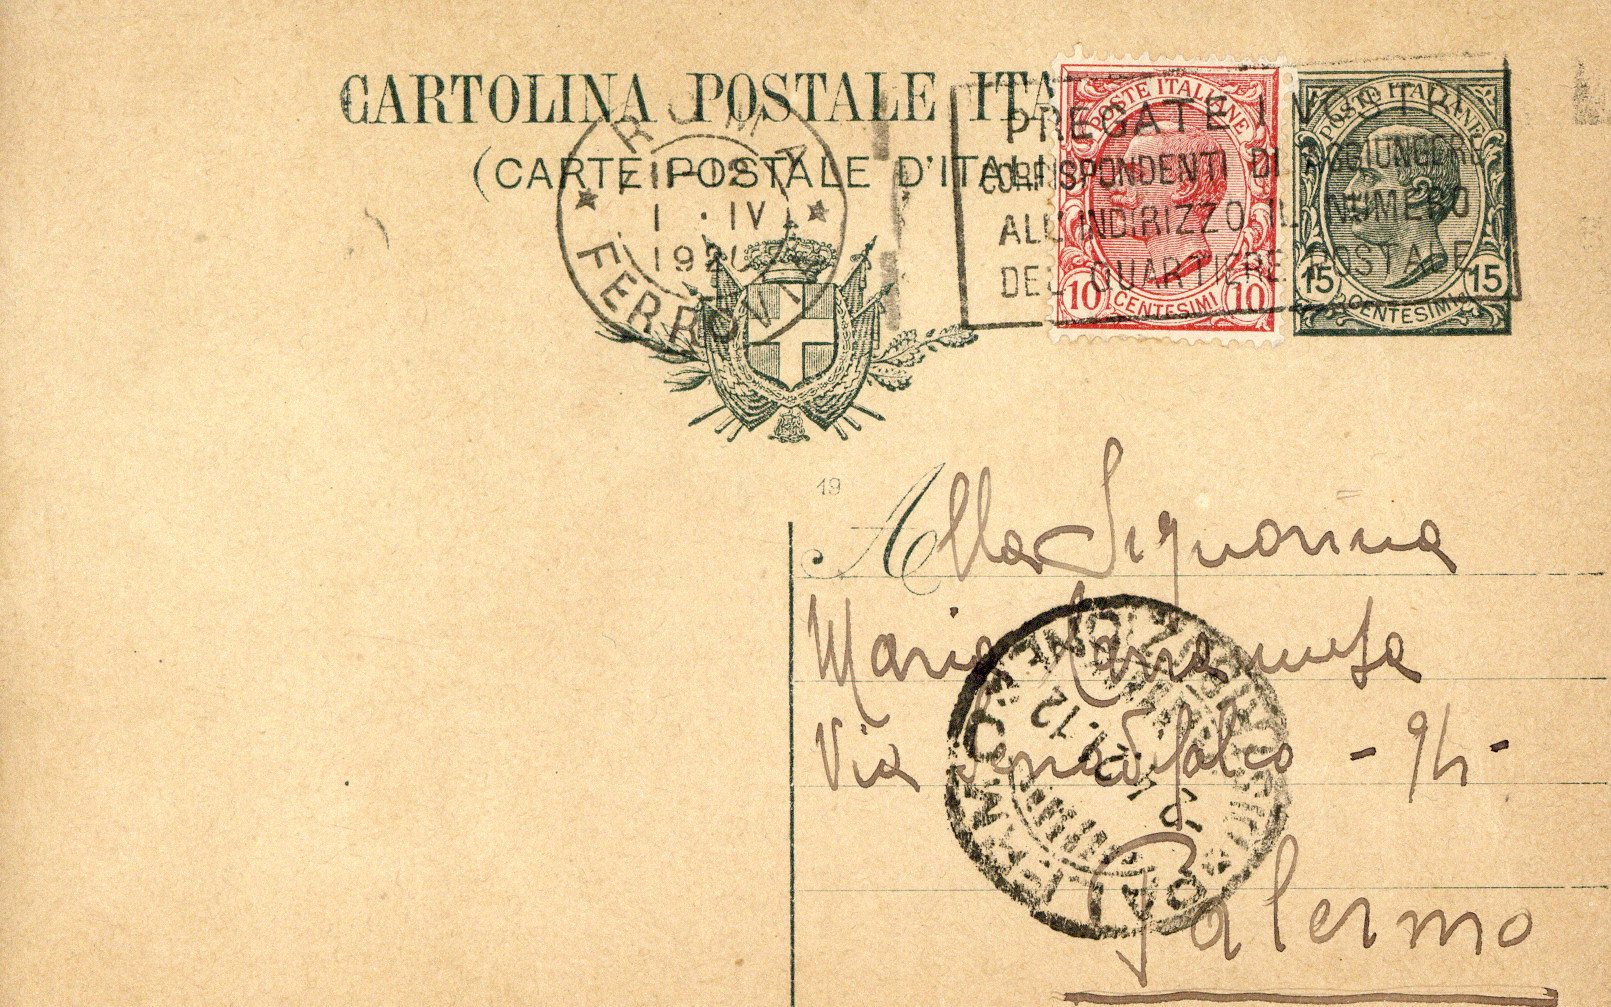 CARTOLINA POSTALE ITA
(CARTE POSTALE D'ITALI
ROMA
11-12
1 · IV
192
FERROVIA
PREGATE I VOSTRI
CORRISPONDENTI DI AGGIUNGERE
ALL'INDIRIZZO IL NUMERO
DEL QUARTIERE POSTALE
POSTE ITALIANE
10 CENTESIMI 10
POSTE ITALIANE
15 CENTESIMI 15
19
Alla Signorina
Maria
Via - 94 -
Palermo
PALERMO
12